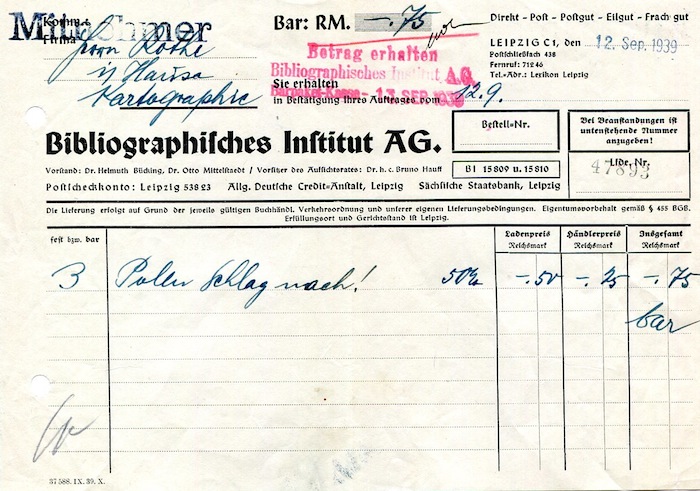 Mitnehmer
Komm.:
Firma
Herrn Rothe
i/ Hause
Kartographie
Bar: RM. —.75
Direkt - Post - Postgut - Eilgut - Frachtgut
LEIPZIG C1, den 12. Sep. 1939
Postschließfach 438
Fernruf: 71246
Tel.-Adr.: Lexikon Leipzig
Betrag erhalten
Bibliographisches Institut A.G.
Barpaket-Kasse - 13 SEP 1939
Sie erhalten
in Bestätigung Ihres Auftrages vom 12.9.
Bibliographisches Institut AG.
Vorstand: Dr. Helmuth Bücking, Dr. Otto Mittelstaedt / Vorsitzer des Aufsichtsrates: Dr. h. c. Bruno Hauff
Postscheckkonto: Leipzig 538 23 Allg. Deutsche Credit-Anstalt, Leipzig Sächsische Staatsbank, Leipzig
Bestell-Nr.
BI 15809 u. 15810
Bei Beanstandungen ist
untenstehende Nummer
anzugeben!
Lfde. Nr.
47893
Die Lieferung erfolgt auf Grund der jeweils gültigen Buchhändl. Verkehrsordnung und unserer eigenen Lieferungsbedingungen. Eigentumsvorbehalt gemäß § 455 BGB.
Erfüllungsort und Gerichtsstand ist Leipzig.
fest bzw. bar
Ladenpreis
Reichsmark
Händlerpreis
Reichsmark
Insgesamt
Reichsmark
3 Polen Schlag nach! 50% —.50 —.25 —.75
bar
37588. IX. 39. X.